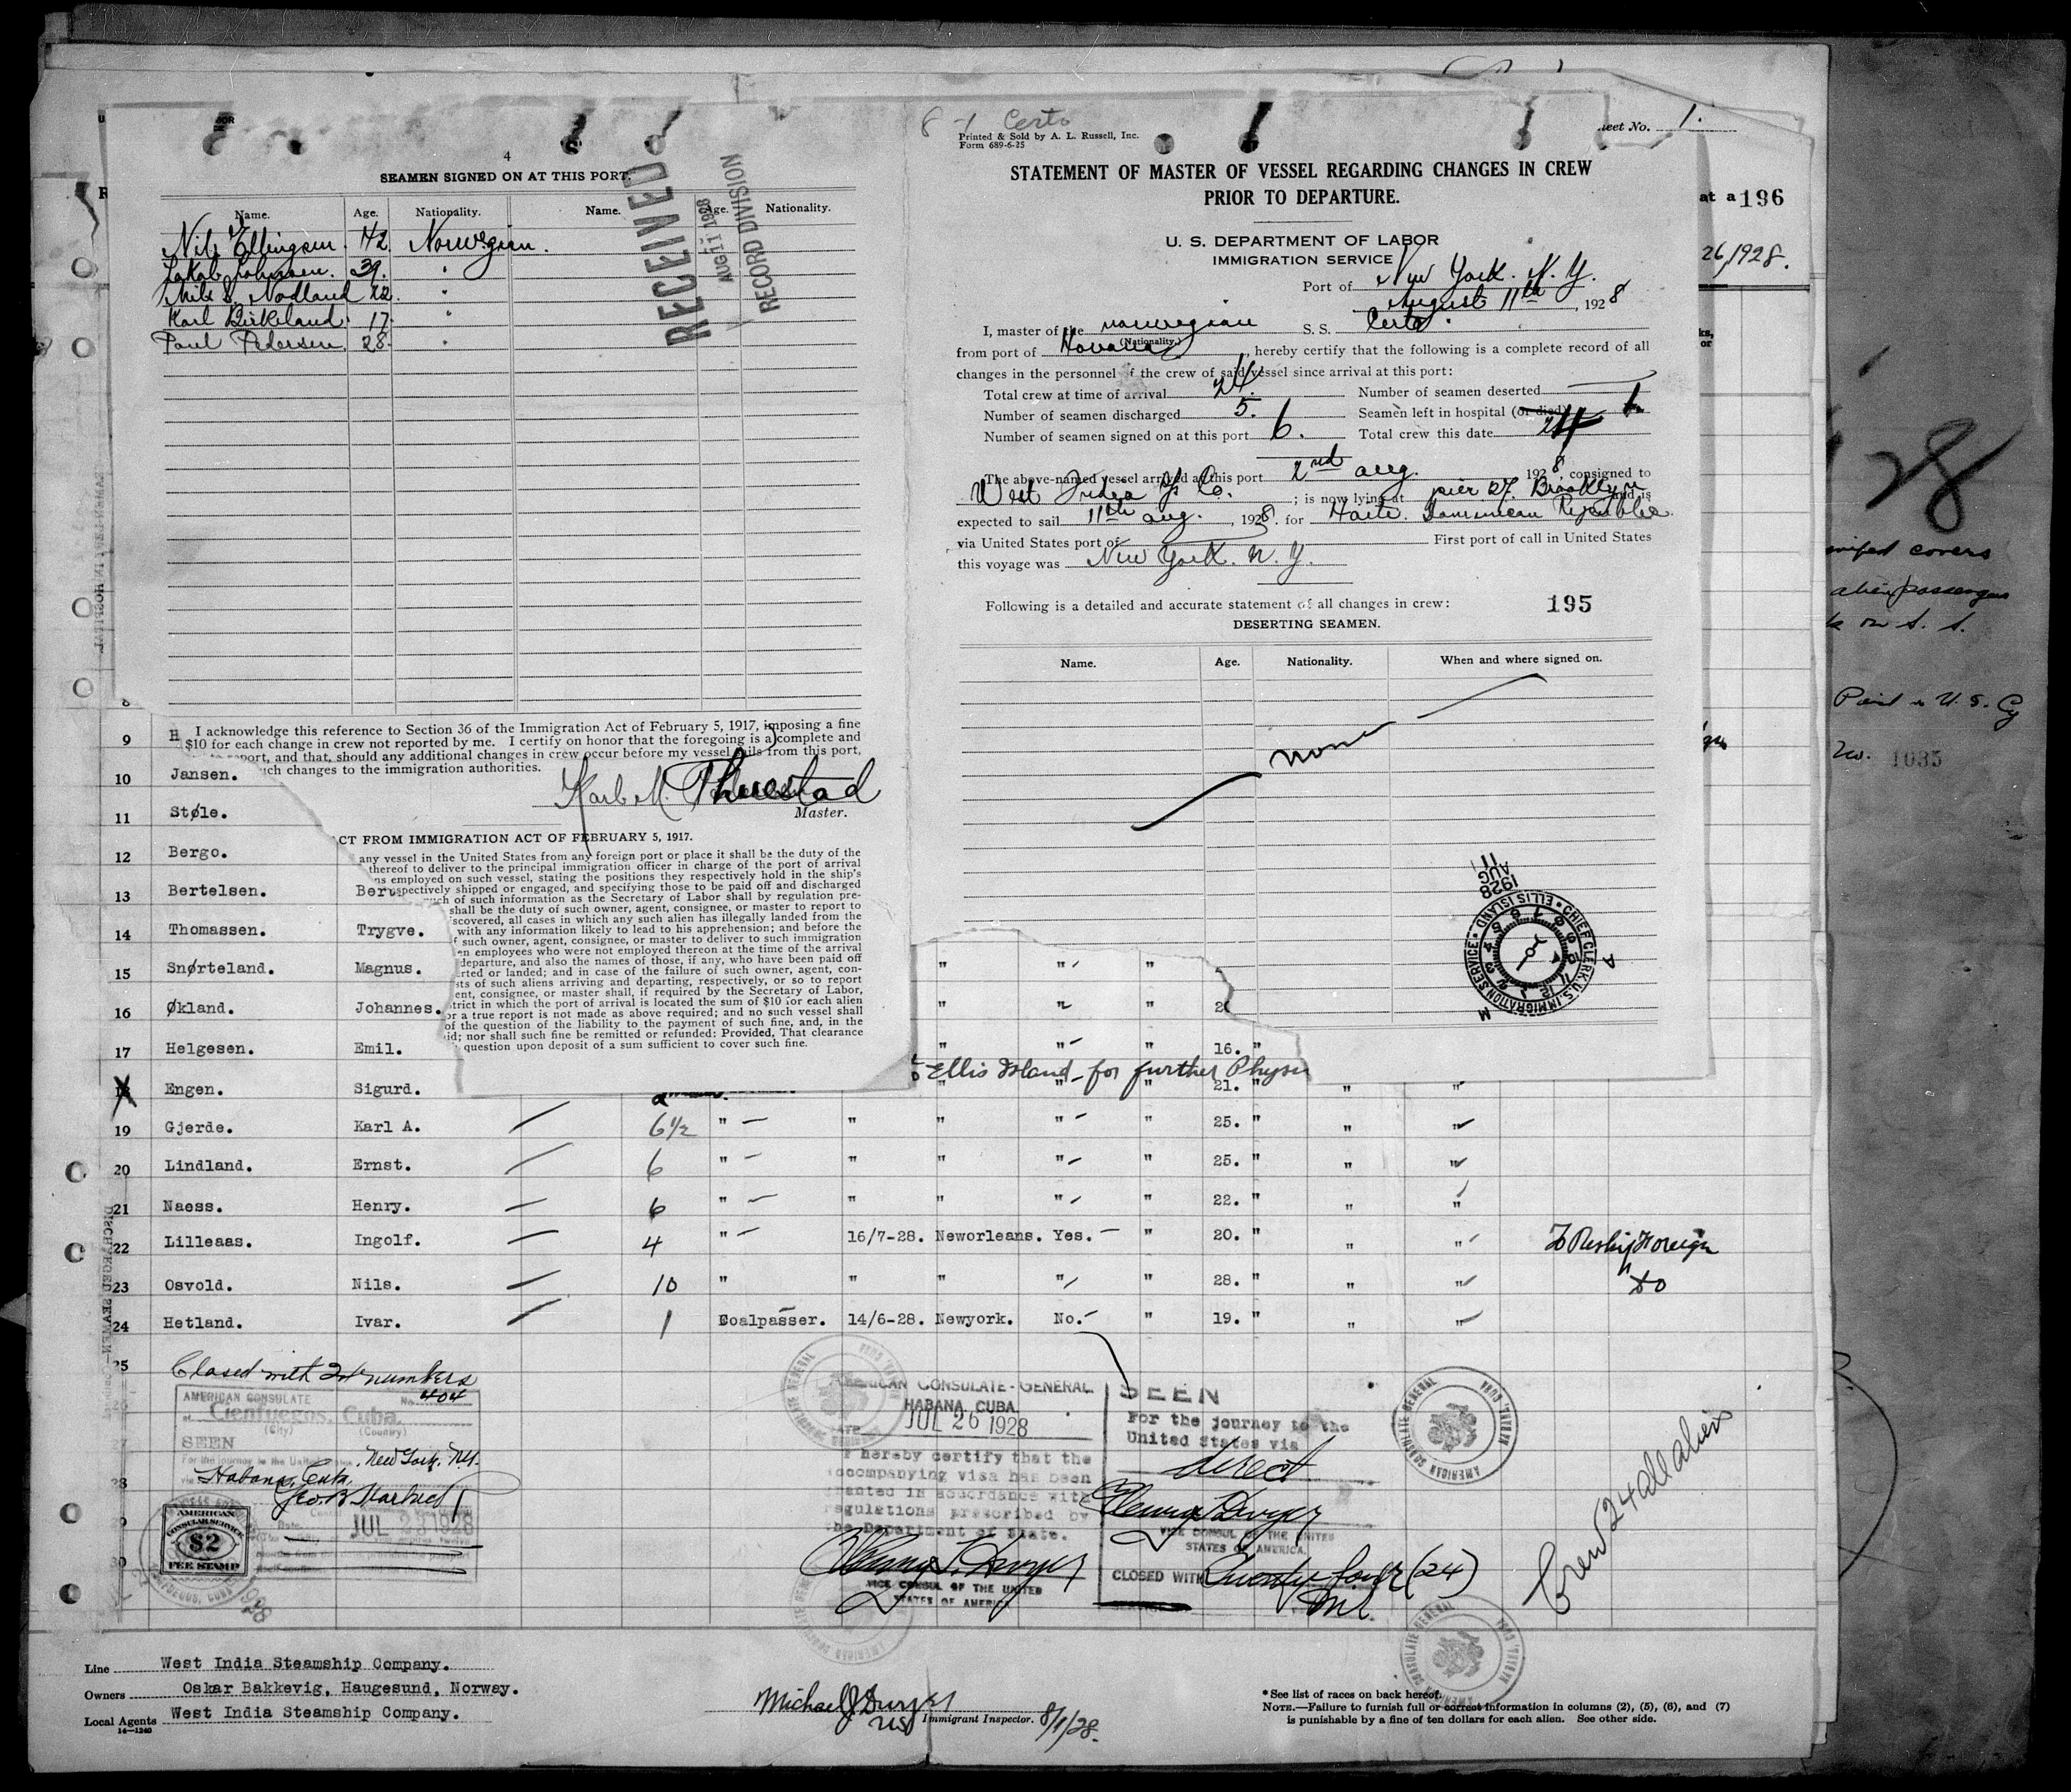 4
SEAMEN SIGNED ON AT THIS PORT.
Name. Age. Nationality. Name. Age. Nationality.
Nils Ellingsen. 42 Norwegian.
Jakob Johnsen. 39. "
Nils S. Nodland 22. "
Karl Birkeland. 17. "
Paul Pedersen. 28. "
RECEIVED
AUG 11 1928
RECORD DIVISION
I acknowledge this reference to Section 36 of the Immigration Act of February 5, 1917, imposing a fine
$10 for each change in crew not reported by me. I certify on honor that the foregoing is a complete and
report, and that, should any additional changes in crew occur before my vessel sails from this port,
such changes to the immigration authorities.
Karl M. Thuestad
Master.
ACT FROM IMMIGRATION ACT OF FEBRUARY 5, 1917.
any vessel in the United States from any foreign port or place it shall be the duty of the
thereof to deliver to the principal immigration officer in charge of the port of arrival
ns employed on such vessel, stating the positions they respectively hold in the ship's
spectively shipped or engaged, and specifying those to be paid off and discharged
such of such information as the Secretary of Labor shall by regulation pre-
shall be the duty of such owner, agent, consignee, or master to report to
iscovered, all cases in which any such alien has illegally landed from the
with any information likely to lead to his apprehension; and before the
f such owner, agent, consignee, or master to deliver to such immigration
en employees who were not employed thereon at the time of the arrival
departure, and also the names of those, if any, who have been paid off
rted or landed; and in case of the failure of such owner, agent, con-
sts of such aliens arriving and departing, respectively, or so to report
ent, consignee, or master shall, if required by the Secretary of Labor,
trict in which the port of arrival is located the sum of $10 for each alien
or a true report is not made as above required; and no such vessel shall
of the question of the liability to the payment of such fine, and, in the
id; nor shall such fine be remitted or refunded: Provided, That clearance
question upon deposit of a sum sufficient to cover such fine.
8-1 Certo
Printed & Sold by A. L. Russell, Inc.
Form 689-6-25
STATEMENT OF MASTER OF VESSEL REGARDING CHANGES IN CREW
PRIOR TO DEPARTURE.
U. S. DEPARTMENT OF LABOR
IMMIGRATION SERVICE
Port of New York. N. Y.
August 11th, 1928
I, master of the norwegian S. S. Certo.
(Nationality.)
from port of Havana, hereby certify that the following is a complete record of all
changes in the personnel of the crew of said vessel since arrival at this port:
Total crew at time of arrival 24. Number of seamen deserted
Number of seamen discharged 5. Seamen left in hospital (or died) 1.
Number of seamen signed on at this port 6. Total crew this date 24
The above-named vessel arrived at this port 2nd aug. 1928, consigned to
West India SS Co. ; is now lying at pier 27. Brooklyn and is
expected to sail 11th aug., 1928. for Haite. Dominican Republic.
via United States port of First port of call in United States
this voyage was New York. N. Y.
Following is a detailed and accurate statement of all changes in crew: 195
DESERTING SEAMEN.
Name. Age. Nationality. When and where signed on.
none
1928
AUG 11
CHIEF CLERK U.S. IMMIGRATION SERVICE • ELLIS ISLAND •
Sheet No. 1.
at a 196
26, 1928.
28
covers
alien passengers
on S. S.
Paid in U. S. Cy
No. 1035
9 H
10 Jansen.
11 Støle.
12 Bergo.
13 Bertelsen. Ber
14 Thomassen. Trygve.
15 Snørteland. Magnus. " " "
16 Økland. Johannes. " " " 2
17 Helgesen. Emil. " " " 16. "
Ellis Island - for further Physi
18 Engen. Sigurd. 21. " " "
19 Gjerde. Karl A. 6½ " " " " " 25. " " "
20 Lindland. Ernst. 6 " " " " " 25. " " "
21 Naess. Henry. 6 " " " " " 22. " " "
22 Lilleaas. Ingolf. 4 " 16/7-28. Neworleans. Yes. " 20. " " " To Reship Foreign
23 Osvold. Nils. 10 " " " " " 28. " " " " do
24 Hetland. Ivar. 1 Coalpasser. 14/6-28. Newyork. No. " 19. " " "
25
28
30
DISCHARGED SEAMEN
Closed with 24 numbers
AMERICAN CONSULATE No. 404
at Cienfuegos, Cuba.
(City) (Country)
SEEN
For the journey to the United States New York. N.Y.
via Habana, Cuba
Geo. B. Starbuck
JUL 23 1928
AMERICAN
CONSULAR SERVICE
$2
FEE STAMP
AMERICAN CONSULATE-GENERAL
HABANA, CUBA
JUL 26 1928
I hereby certify that the
accompanying visa has been
granted in accordance with
regulations prescribed by
the Department of State.
VICE CONSUL OF THE UNITED
STATES OF AMERICA.
SEEN
For the journey to the
United States via
direct
VICE CONSUL OF THE UNITED
STATES OF AMERICA.
CLOSED WITH Twenty four (24)
AMERICAN CONSULATE GENERAL HABANA, CUBA
Crew 24 all aliens
Line West India Steamship Company.
Owners Oskar Bakkevig, Haugesund, Norway.
Local Agents West India Steamship Company.
14-1240
Michael J Dwyer
Immigrant Inspector. 8/1/28.
*See list of races on back hereof.
NOTE.—Failure to furnish full or correct information in columns (2), (5), (6), and (7)
is punishable by a fine of ten dollars for each alien. See other side.